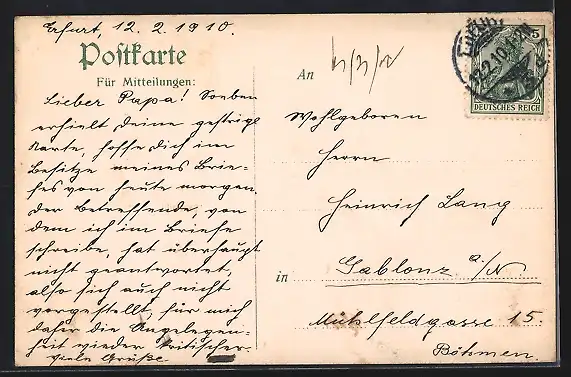 Erfurt, 12. 2. 1910.
Postkarte
Für Mitteilungen:
Lieber Papa! Soeben
erhielt Deine gestrige
Karte, hoffe Dich im
Besitze meines Brie-
fes von heute morgen.
Der betreffende, von
dem ich im Briefe
schreibe, hat überhaupt
nicht geantwortet,
also sich auch nicht
vorgestellt, für mich
daher die Angelegen-
heit wieder kritischer.
Viele Grüße
An
Wohlgeboren
Herrn
Heinrich Lang
in Gablonz a/N.
Mühlfeldgasse 15.
Böhmen.
5
DEUTSCHES REICH